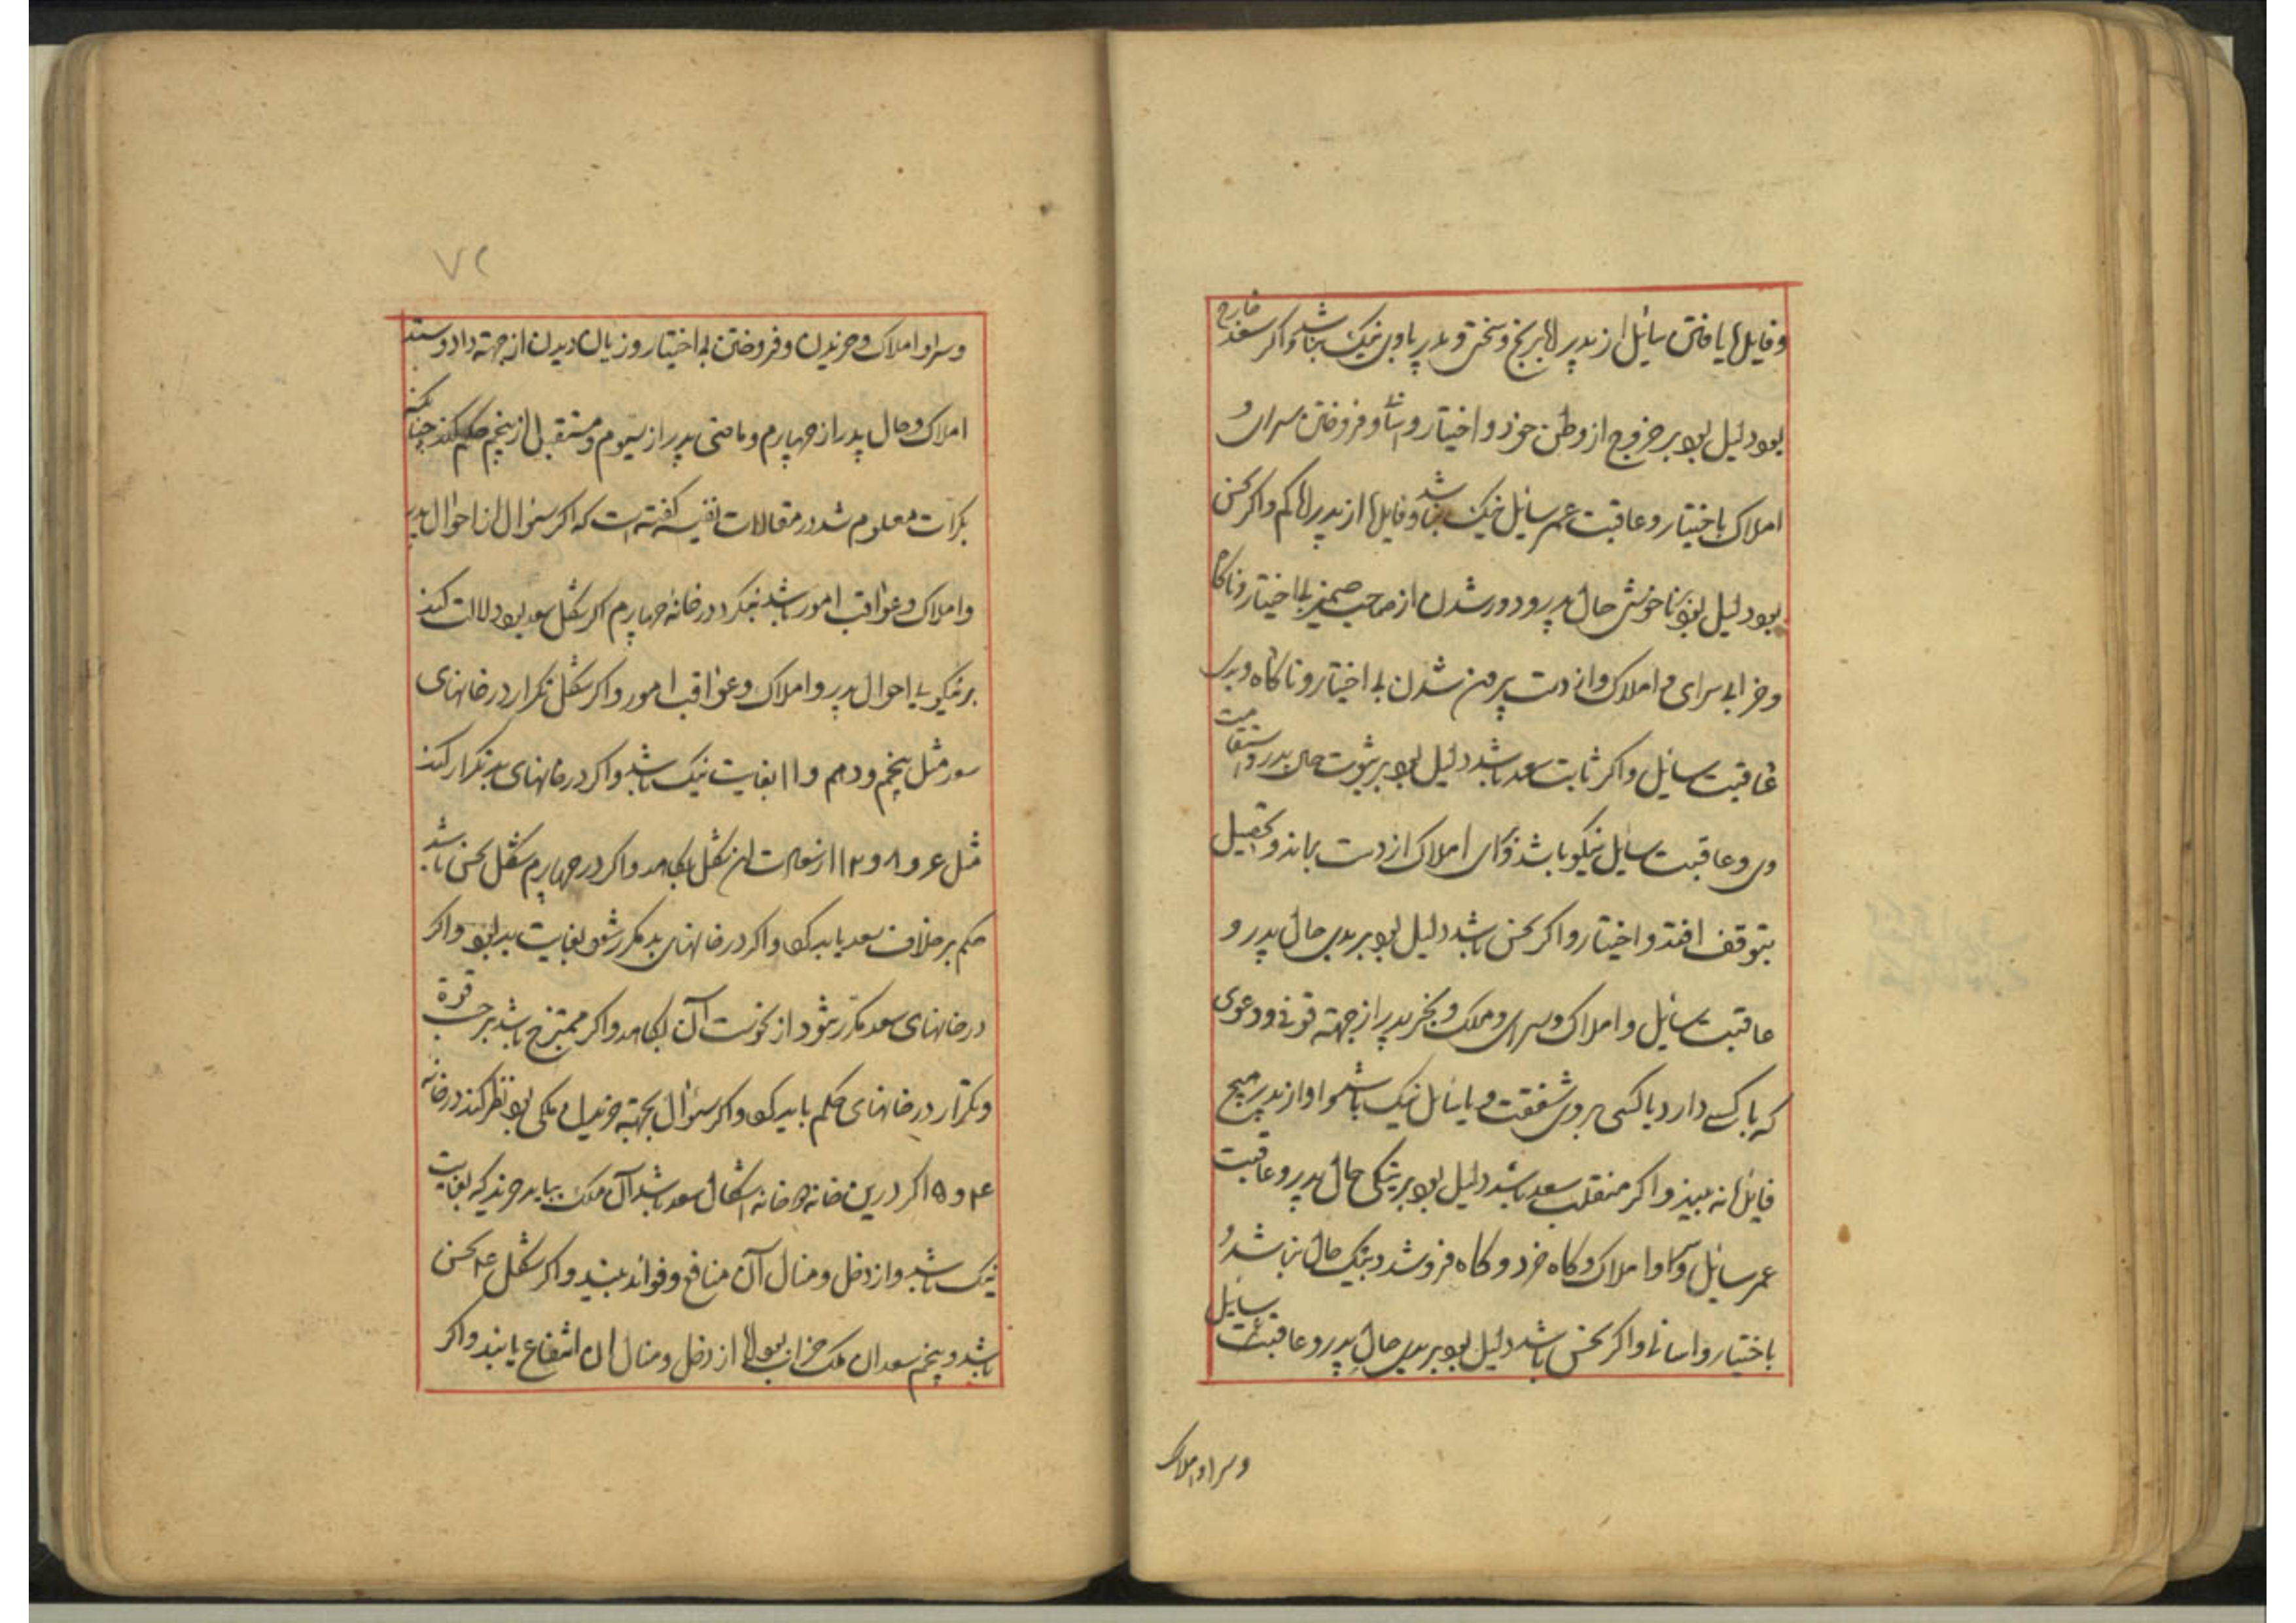 وفایدها یافتن سائل از پدر اما برنج و سختی و پدر با وی نیک باشد و اگر سعد خارج
بود دلیل بود بر خروج از وطن خود و اختیار و فروختن سرای و
املاک باختیار و عاقبت عمر سایل نیک باشد و فایدها از پدر اما کم و اگر نحس
بود دلیل بود بر ناخوشی حال پدر و دور شدن از صاحب ضمیر بی اختیار و ناکام
و خرابی سرای و املاک و از دست بیرون شدن بی اختیار و ناکاه و بدی
عاقبت سائل و اگر ثابت سعد باشد دلیل بود بر ثبوت حال پدر و استقامت
وی و عاقبت سایل نیکو باشد املاک از دست بماند و تحصیل
بتوقف افتد و اختیار و اگر نحس باشد دلیل بود بر بدی حال پدر و
عاقبت سائل و املاک و سرای و ملک پدر از جهته و دعوی
که با کسی دارد یا کسی بر وی شفقت و با سائل نیک باشد اما او از پدر هیچ
فایدها نه بیند و اگر منقلب سعد باشد دلیل بود بر نیکی حال پدر و عاقبت
عمر سائل و املاک و کاه خرد و کاه فروشد و نیک حال باشد و
باختیار و اسانی و اگر نحس باشد دلیل بود بر بدی حال پدر و عاقبت سایل
وسرا و املاک
۷۲
وسرا و املاک و خریدن و فروختن بی اختیار و زیان دیدن از جهته داد و ستد
املاک و حال پدر از چهارم و ماضی پدر از سیوم و مستقبل از پنجم حکم کند چنانکه
بکرات معلوم شد در مقالات نفیسه کفته است که اکر سئوال از احوال پدر
و املاک و عواقب امور باشد بنکرد در خانه چهارم اکر شکل سعد بود دلالت کند
بر نیکویی احوال پدر و املاک و عواقب امور و اکر شکل تکرار در خانهای
سعد مثل پنجم و دهم و ۱۱ بغایت نیک باشد و اکر در خانهای بد تکرار کند
مثل ۶ و ۸ و ۱۲ از سعادت ان شکل بکاهد و اکر در چهارم شکل نحس باشد
حکم بر خلاف سعد باید کرد و اکر در خانهای بد مکرر شود بغایت بد بود و اکر
در خانهای سعد مکرر شود از نحوست آن بکاهد و اکر ممتزج باشد بر حسب قوة
و تکرار در خانهای حکم باید کرد و اکر سئوال بجهته خریدن ملکی بود نظر کند در خانه
۴ و ۵ اکر درین خانه اشکال سعد باشد آن ملک بباید خرید که بغایت
نیک باشد و از دخل و منال آن منافع و فوائد بیند و اکر شکل ۴ نحس
باشد و پنجم سعد ان ملک خراب بود اما از دخل و منال ان انتفاع یابند و اکر